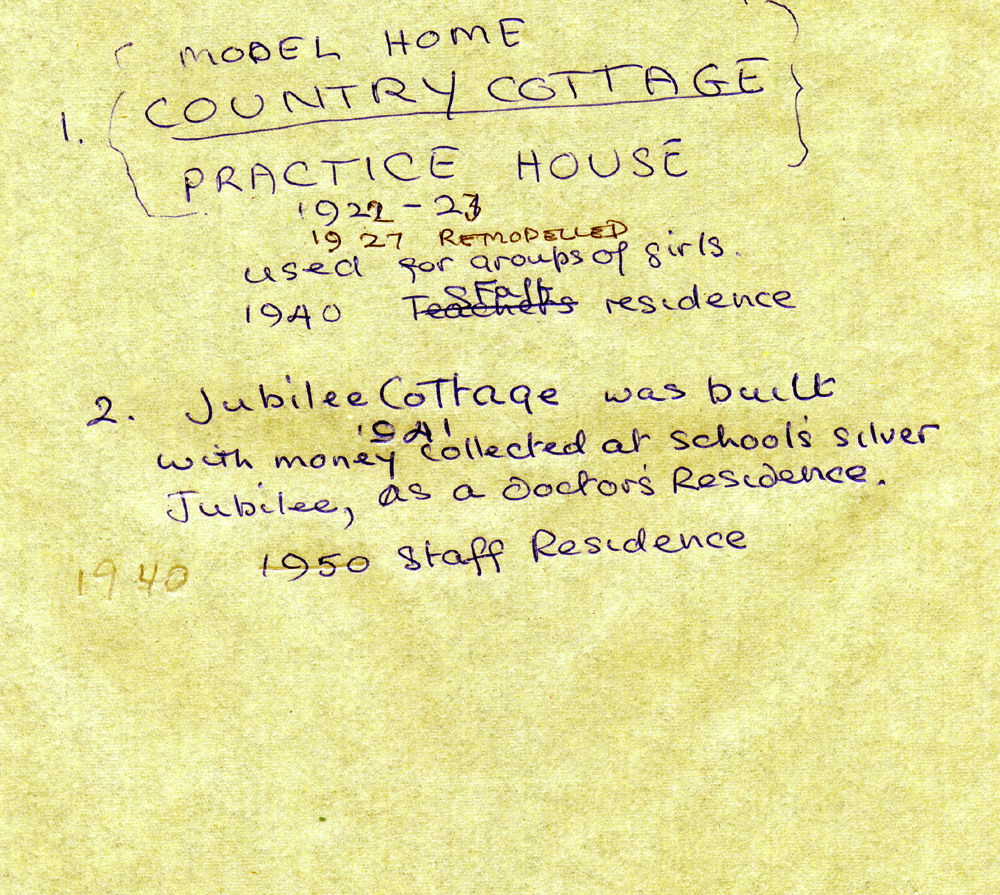 MODEL HOME
1. COUNTRY COTTAGE
PRACTICE HOUSE
1922-23
1927 REMODELLED
used for groups of girls.
1940 Teachers Staff residence
2. Jubilee Cottage was built
1941
with money collected at school's silver
Jubilee, as a Doctor's Residence.
1940 1950 Staff Residence